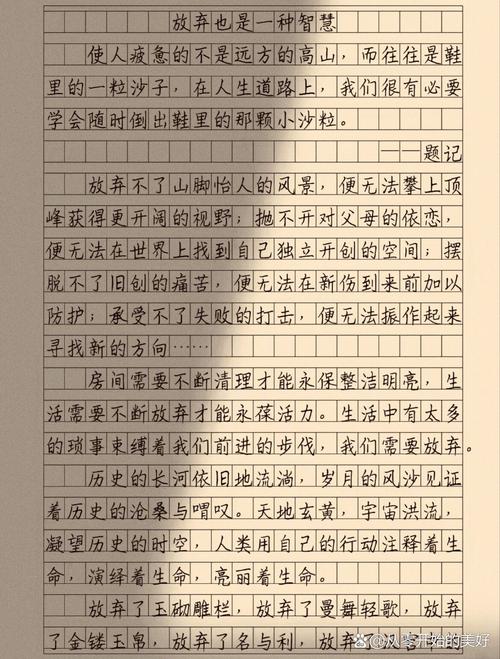 放弃也是一种智慧
使人疲惫的不是远方的高山，而往往是鞋
里的一粒沙子，在人生道路上，我们很有必要
学会随时倒出鞋里的那颗小沙粒。
——题记
放弃不了山脚怡人的风景，便无法攀上顶
峰获得更开阔的视野；抛不开对父母的依恋，
便无法在世界上找到自己独立开创的空间；摆
脱不了旧创的痛苦，便无法在新伤到来前加以
防护；承受不了失败的打击，便无法振作起来
寻找新的方向……
房间需要不断清理才能永保整洁明亮，生
活需要不断放弃才能永葆活力。生活中有太多
的琐事束缚着我们前进的步伐，我们需要放弃。
历史的长河依旧地流淌，岁月的风沙见证
着历史的沧桑与喟叹。天地玄黄，宇宙洪流，
凝望历史的时空，人类用自己的行动注释着生
命，演绎着生命，亮丽着生命。
放弃了玉砌雕栏，放弃了曼舞轻歌，放弃
了金镂玉帛，放弃了名与利，放弃
@从零开始的美好